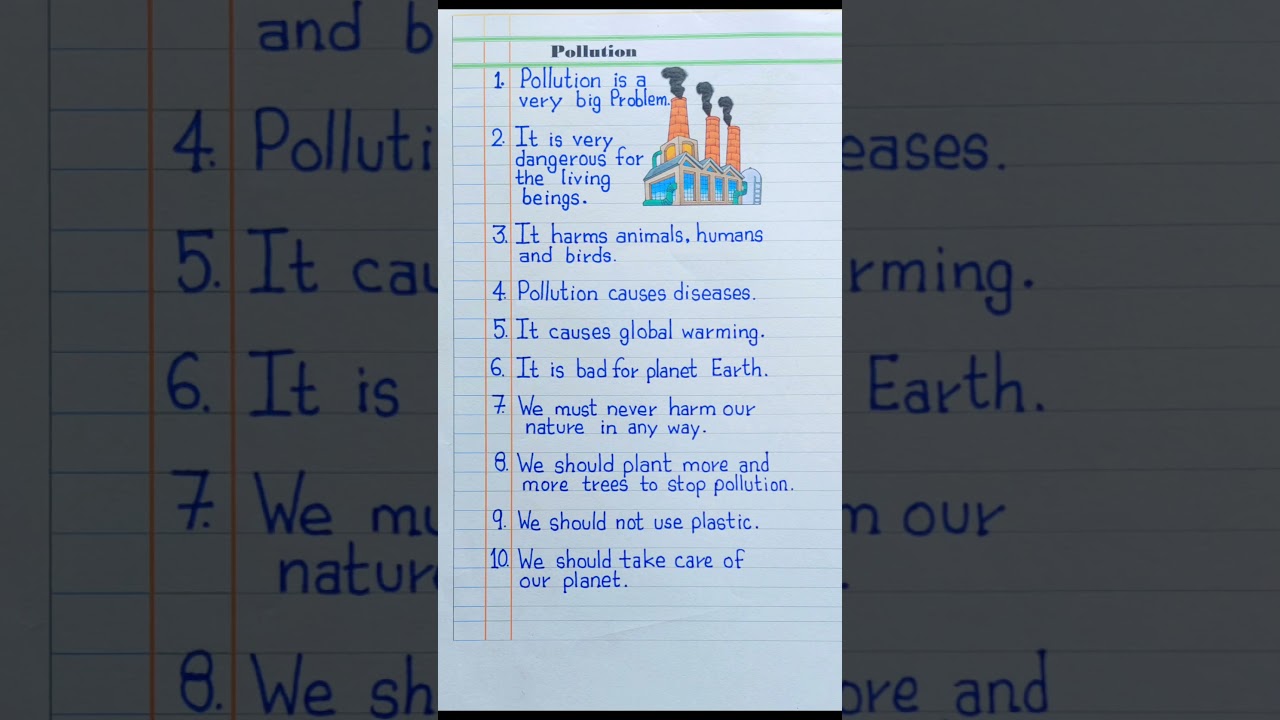 Pollution
1. Pollution is a
very big Problem.
2. It is very
dangerous for
the living
beings.
3. It harms animals, humans
and birds.
4. Pollution causes diseases.
5. It causes global warming.
6. It is bad for planet Earth.
7. We must never harm our
nature in any way.
8. We should plant more and
more trees to stop pollution.
9. We should not use plastic.
10. We should take care of
our planet.